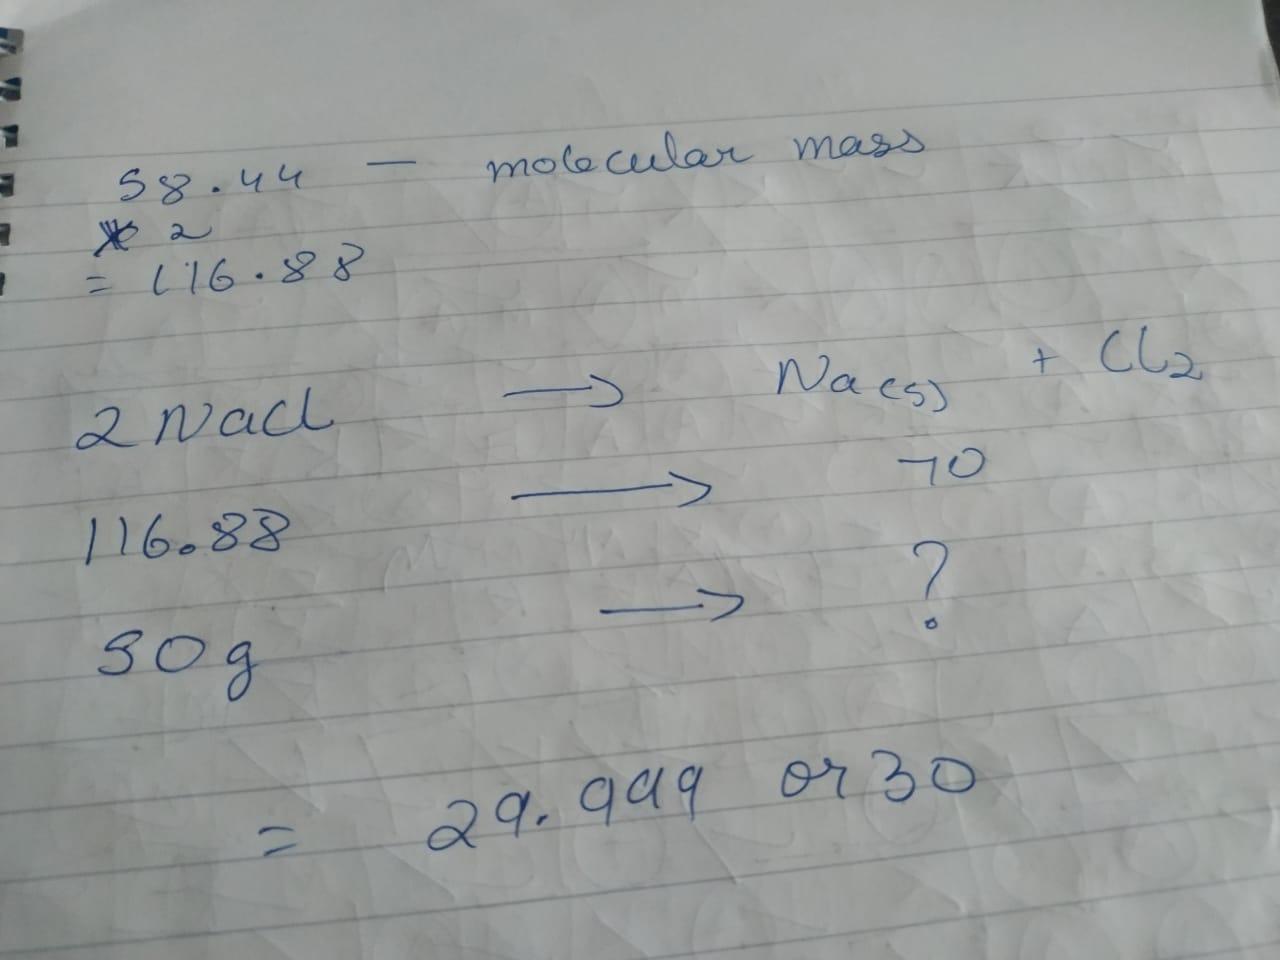 58.44 — molecular mass
* 2
= 116.88
2 NaCl → Na (s) + Cl2
116.88 → 70
50g → ?
= 29.999 or 30